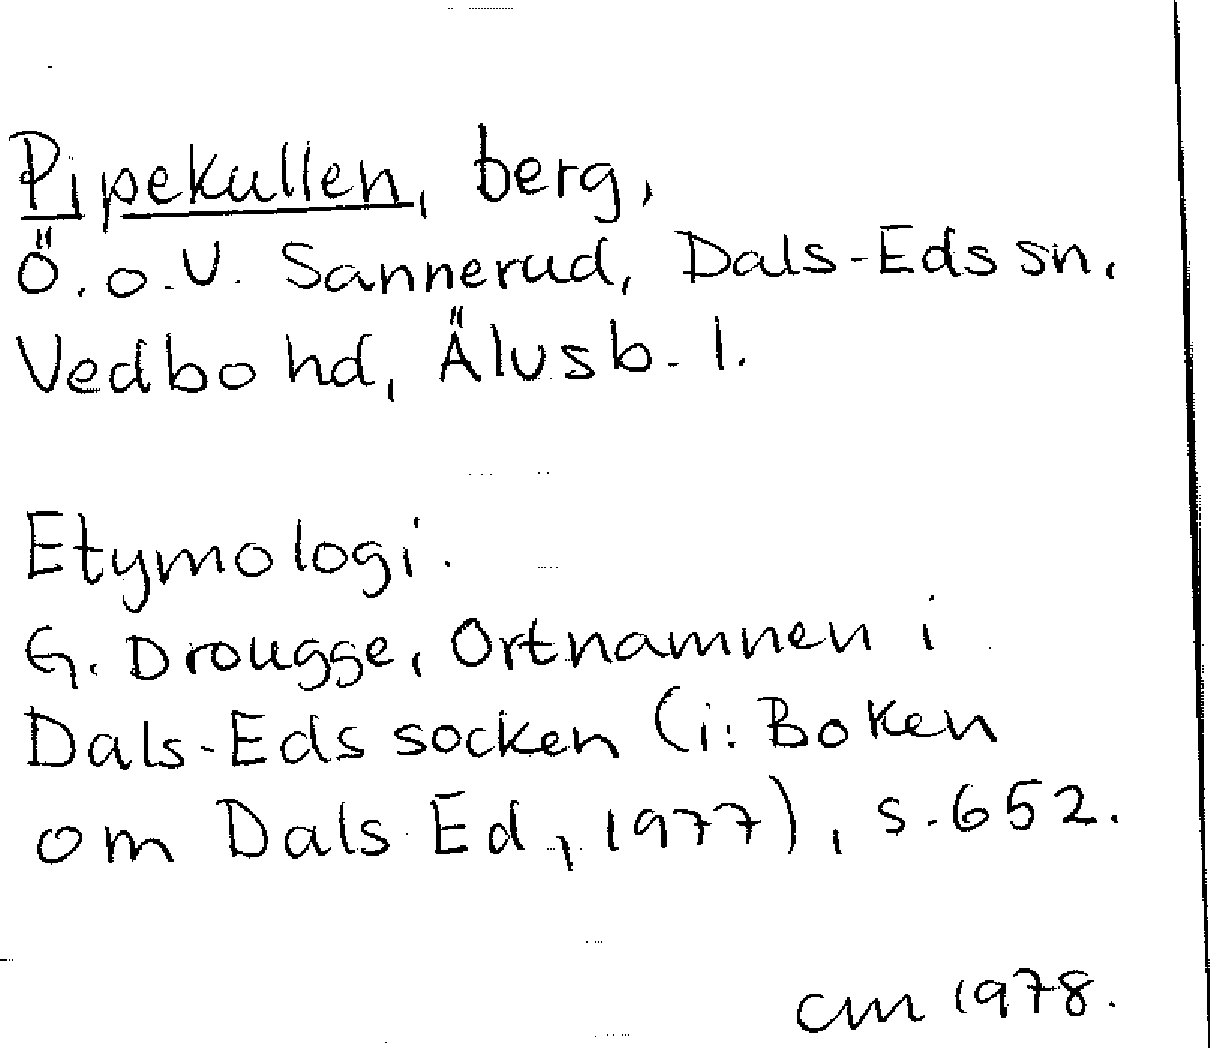 Pipekullen, berg,
Ö. o. V. Sannerud, Dals-Eds sn.
Vedbo hd, Älvsb. l.
Etymologi.
G. Drougge, Ortnamnen i
Dals-Eds socken (i: Boken
om Dals Ed, 1977), s. 652.
CM 1978.